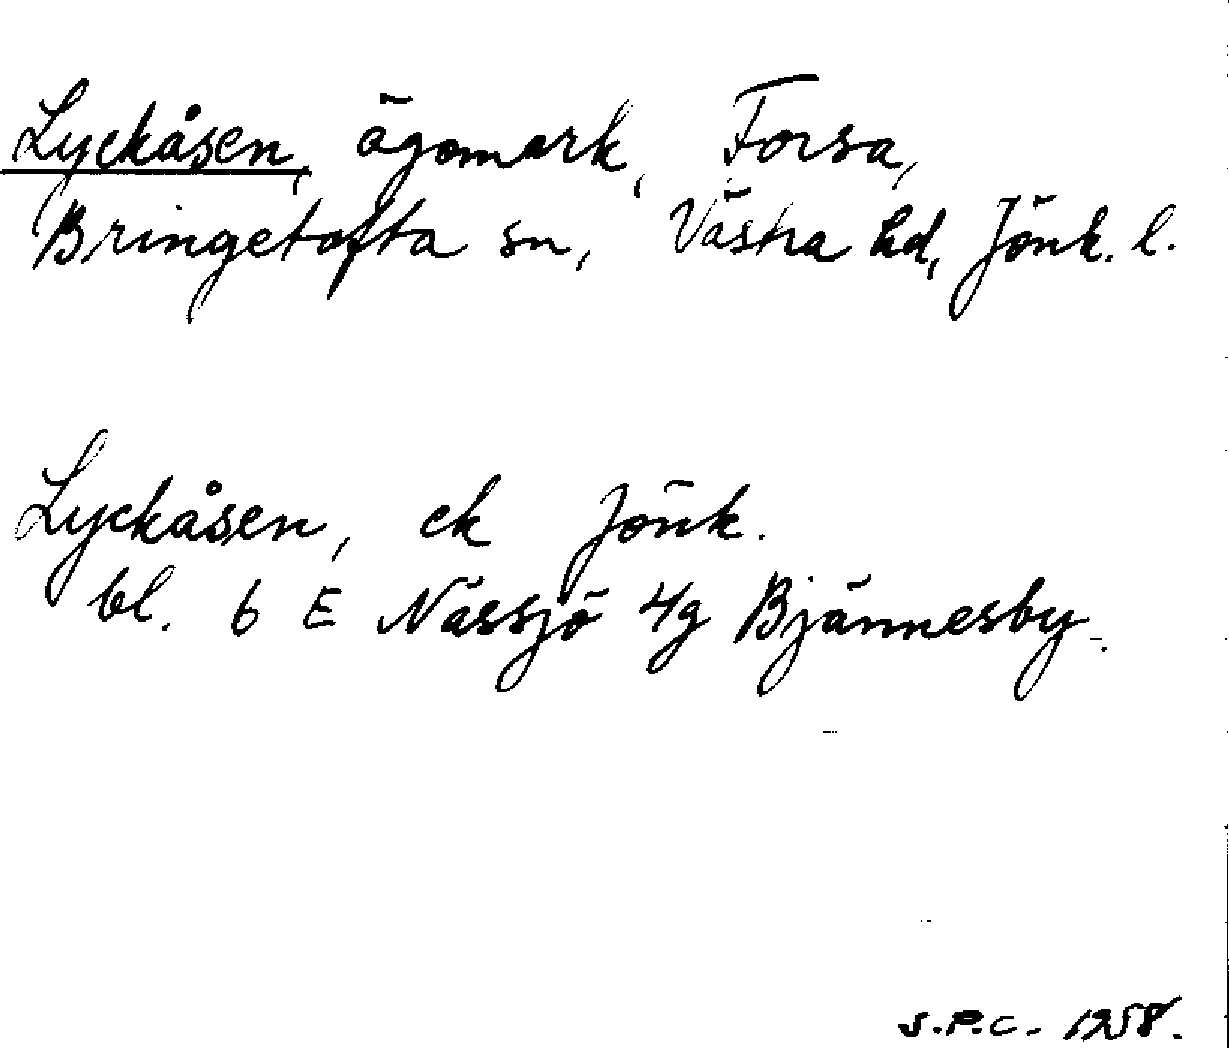 Lyckåsen, ägomark, Forsa,
Bringetofta sn, Västra hd, Jönk. l.
Lyckåsen, ek Jönk.
bl. 6 E Nässjö 4g Bjännesby.
S.P.C. 1958.